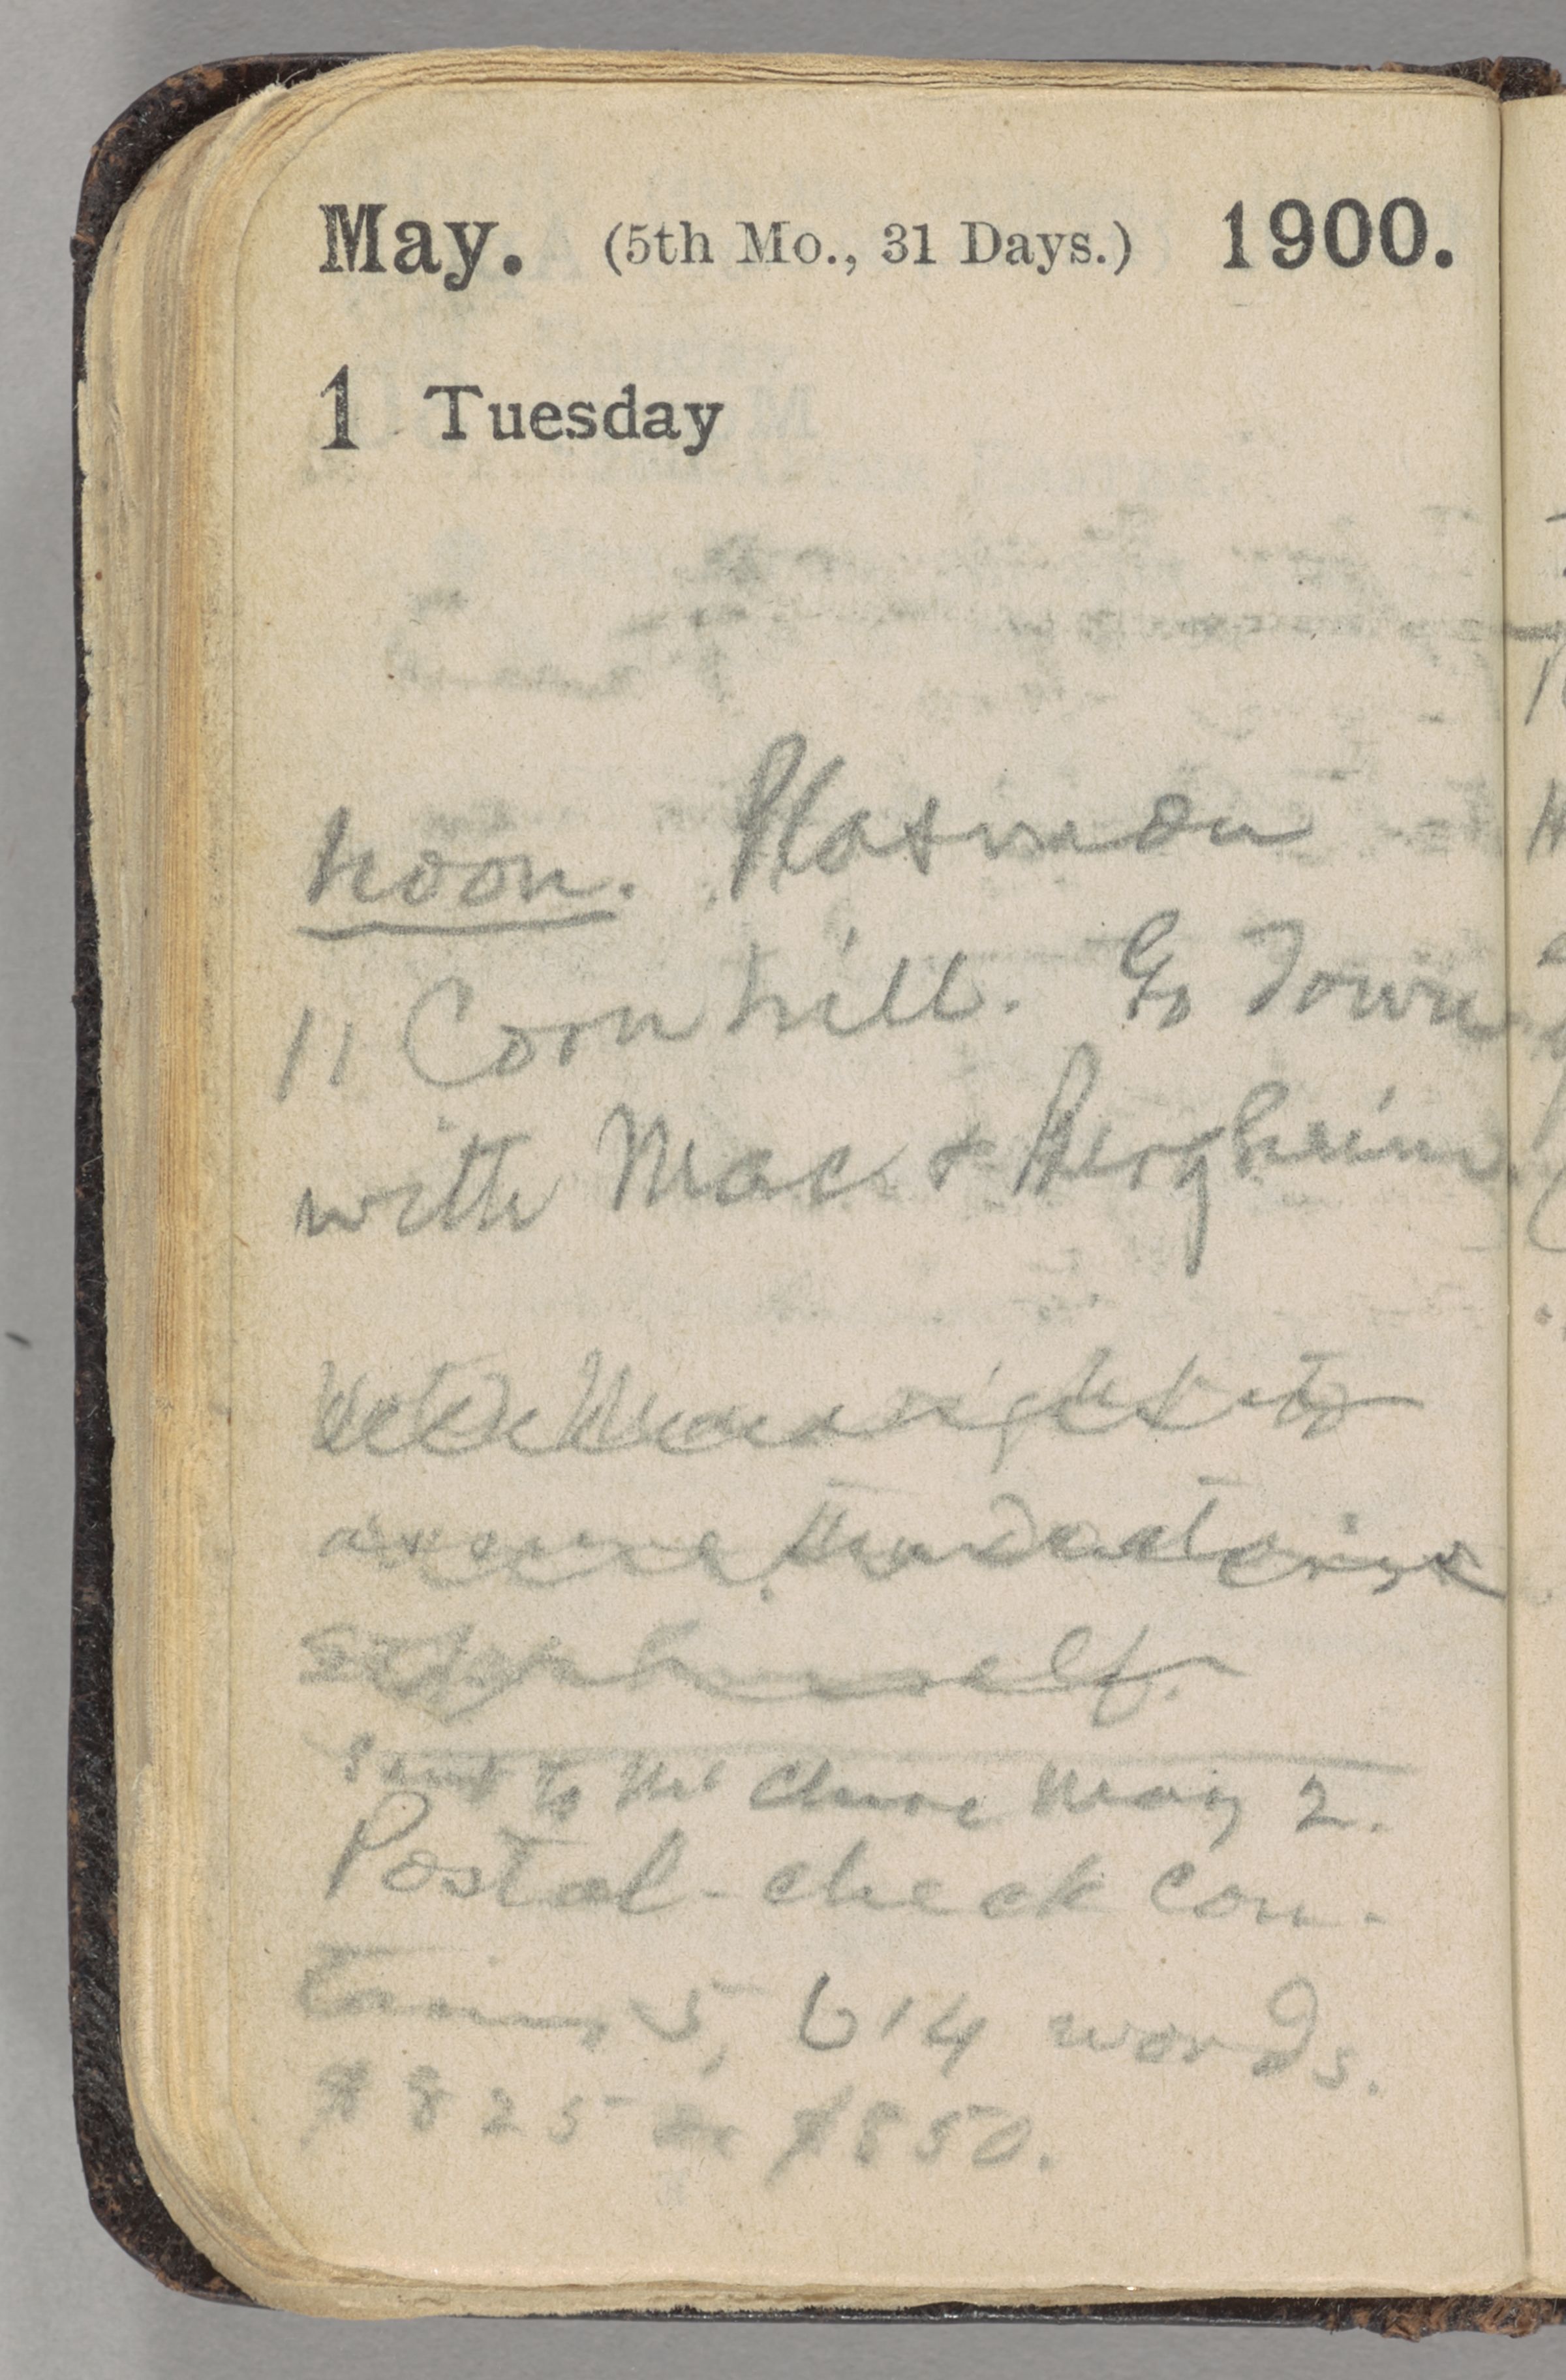 May. (5th Mo., 31 Days.) 1900.
1 Tuesday
noon. Plasmon
11 Cornhill. Go Town
with Mac & Bergheim.
right to
self.
Sent to McClure May 2.
Postal-check con-
tains 5,614 words.
$825 or $850.